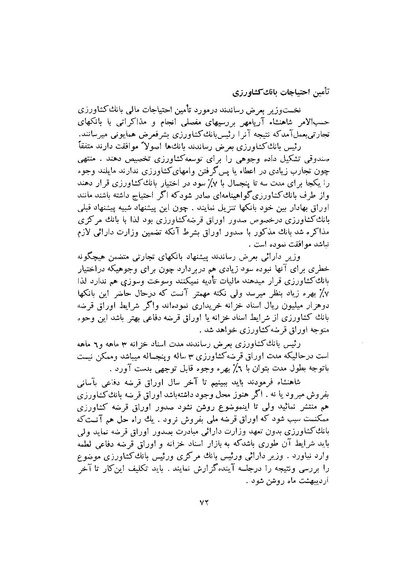 تأمین احتیاجات بانك كشاورزی
نخست‌وزیر بعرض رساندند درمورد تأمین احتیاجات مالی بانك كشاورزی
حسب‌الامر شاهنشاه آریامهر بررسیهای مفصلی انجام و مذاكراتی با بانكهای
تجارتی بعمل آمد كه نتیجه آنرا رئیس بانك كشاورزی بشرفعرض همایونی میرسانند.
رئیس بانك كشاورزی بعرض رساندند بانك‌ها اصولاً موافقت دارند متفقاً
صندوقی تشكیل داده وجوهی را برای توسعه كشاورزی تخصیص دهند . منتهی
چون تجارب زیادی در اعطاء یا پس گرفتن وامهای كشاورزی ندارند مایلند وجوه
را یكجا برای مدت سه تا پنجسال با ۷٪ سود در اختیار بانك كشاورزی قرار دهند
واز طرف بانك كشاورزی گواهینامه‌ای صادر شود كه اگر احتیاج داشته باشند مانند
اوراق بهادار بین خود بانكها تنزیل نمایند . چون این پیشنهاد شبیه پیشنهاد قبلی
بانك كشاورزی درخصوص صدور اوراق قرضه كشاورزی بود لذا با بانك مركزی
مذاكره شد بانك مذكور با صدور اوراق بشرط آنكه تضمین وزارت دارائی لازم
نباشد موافقت نموده است .
وزیر دارائی بعرض رساندند پیشنهاد بانكهای تجارتی متضمن هیچگونه
خطری برای آنها نبوده سود زیادی هم دربردارد چون برای وجوهیكه دراختیار
بانك كشاورزی قرار میدهند مالیات تأدیه نمیكنند وسوخت وسوزی هم ندارد لذا
۷٪ بهره زیاد بنظر میرسد ولی نكته مهمتر آنست كه درحال حاضر این بانكها
دوهزار میلیون ریال اسناد خزانه خریداری نموده‌اند واگر شرایط اوراق قرضه
بانك كشاورزی از شرایط اسناد خزانه یا اوراق قرضه دفاعی بهتر باشد این وجوه
متوجه اوراق قرضه كشاورزی خواهد شد .
رئیس بانك كشاورزی بعرض رساندند مدت اسناد خزانه ۳ ماهه و ۶ ماهه
است درحالیكه مدت اوراق قرضه كشاورزی ۳ ساله وپنجساله میباشد وممكن نیست
باتوجه بطول مدت بتوان با ۶٪ بهره وجوه قابل توجهی بدست آورد .
شاهنشاه فرمودند باید ببینیم تا آخر سال اوراق قرضه دفاعی بآسانی
بفروش میرود یا نه . اگر هنوز محل وجود داشته‌باشد اوراق قرضه بانك كشاورزی
هم منتشر نمائید ولی تا اینموضوع روشن نشود صدور اوراق قرضه كشاورزی
ممكنست سبب شود كه اوراق قرضه ملی بفروش نرود . یك راه حل هم آنست كه
بانك كشاورزی بدون تعهد وزارت دارائی مبادرت بصدور اوراق قرضه نماید ولی
باید شرایط آن طوری باشد كه به بازار اسناد خزانه و اوراق قرضه دفاعی لطمه
وارد نیاورد . وزیر دارائی ورئیس بانك مركزی ورئیس بانك كشاورزی موضوع
را بررسی ونتیجه را درجلسه آینده گزارش نمایند . باید تكلیف این كار تا آخر
اردیبهشت ماه روشن شود .
۷۲